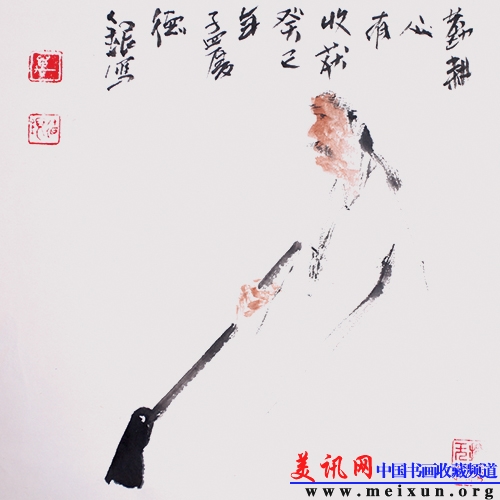 勤耕
必
有
收获
癸巳
年
孟夏
德
美讯网 中国书画收藏频道
www.meixun.org